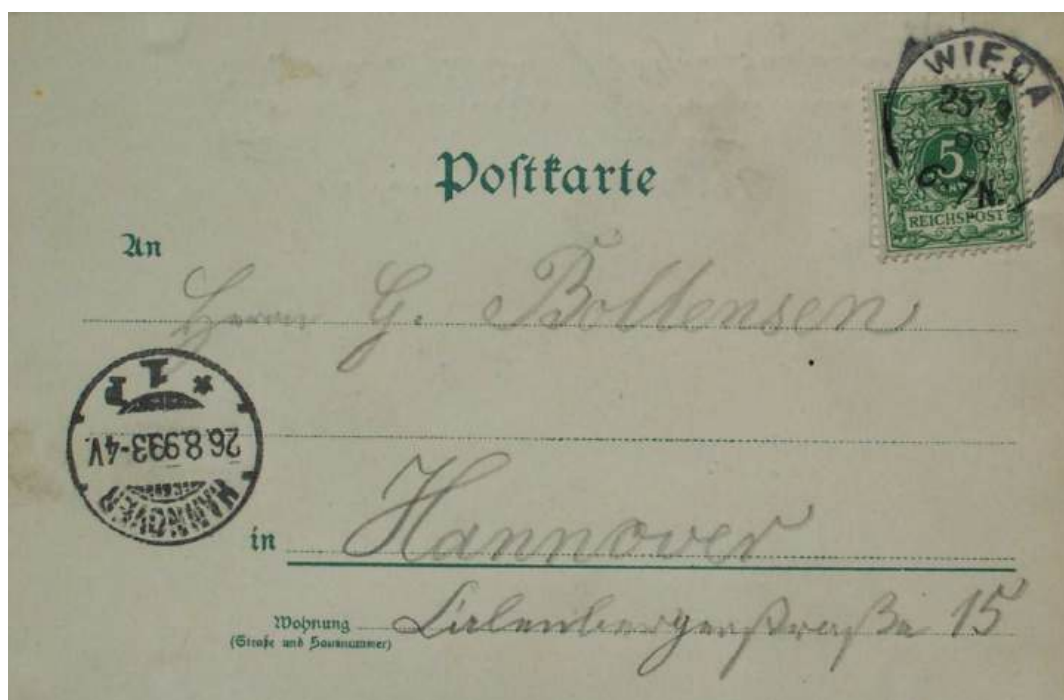 WIEDA
25 8
99
6-7N.
5
REICHSPOST
Postkarte
An
Herrn G. Bollensen
HANNOVER
26.8.99.3-4V.
* 1 P
in Hannover
Wohnung
(Straße und Hausnummer)
Calenbergerstraße 15